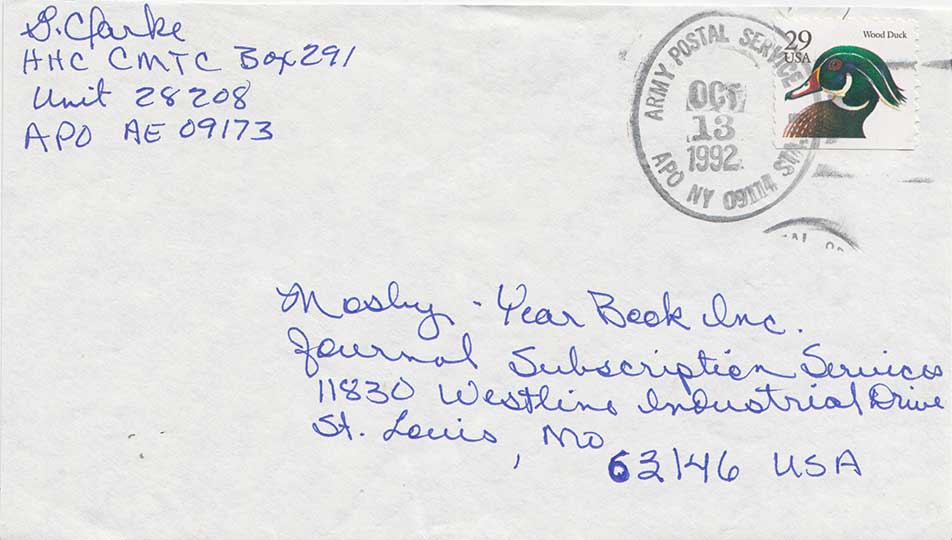 S. Clarke
HHC CMTC Box 291
Unit 28208
APO AE 09173
ARMY POSTAL SERVICE
OCT
13
1992
APO NY 09114
29
USA
Wood Duck
Mosby - Year Book Inc.
Journal Subscription Services
11830 Westline Industrial Drive
St. Louis, MO
63146 USA